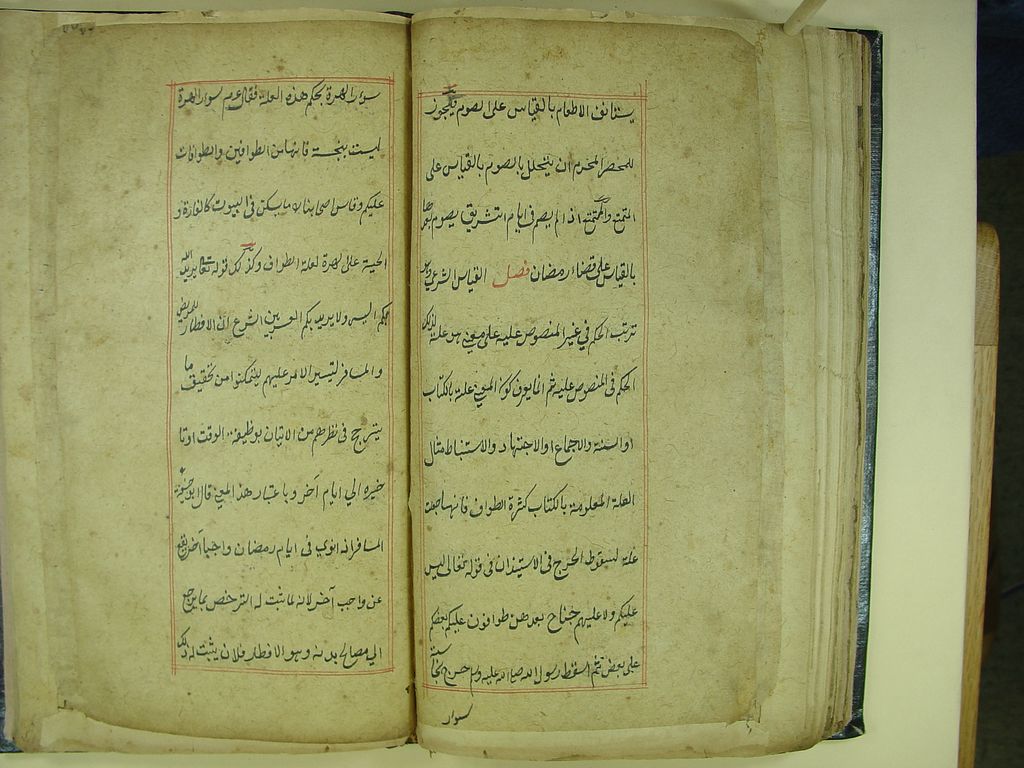 يستانف الاطعام بالقياس على الصوم فيجوز
للمحصر المحرم ان يتحلل بالصوم بالقياس على
التمتع والمتمتع اذا لم يصم في ايام التشريق يصوم بعدها
بالقياس على قضاء رمضان فصل القياس الشرعي
ترتب الحكم في غير المنصوص عليه على معنى هو علة لذلك
الحكم في المنصوص عليه ثم انما يعرف كون المعنى علة بالكتاب
او السنة والاجماع او الاجتهاد والاستنباط مثال
العلة المعلومة بالكتاب كثرة الطواف فانها جعلت
علة لسقوط الحرج في الاستيذان في قوله تعالى ليس
عليكم ولا عليهم جناح بعدهن طوافون عليكم بعضكم
على بعض ثم اسقط رسول الله صلى الله عليه وسلم حرج نجاسة
سوار
سوار الهرة بحكم هذه العلة فقال عم سوار الهرة
ليست بنجسة فانها من الطوافين والطوافات
عليكم وقاس اصحابنا لاما يسكن في البيوت كالفارة و
الحية على الهرة لعلة الطواف وكذلك قوله تعا يريد الله
بكم اليسر ولا يريد بكم العسر بين الشرع ان الافطار للمريض
والمسافر لتيسير الامر عليهم ليتمكنوا من تحقيق ما
يترجح في نظرهم من الاتيان بوظيفة الوقت او تا
خيره الى ايام آخر وباعتبار هذا المعنى قال ابو حنيفة
المسافر اذ انوى في ايام رمضان واجبا آخر يقع
عن واجب آخر لانه لما ثبت له الترخص بما يرجع
الي مصالح بدنه وهو الافطار فلان يثبت له ذلك